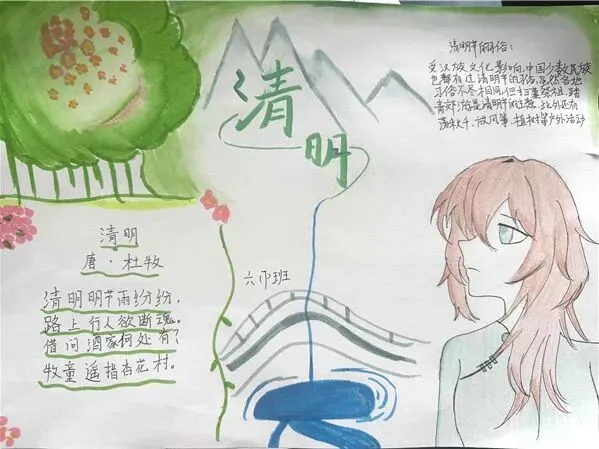 清明
清明节的习俗:
受汉族文化影响,中国少数民族
也都有过清明节的习俗,虽然各地
习俗不尽相同,但扫墓祭祖、踏
青郊游是清明节的主题,此外还有
荡秋千、放风筝、植树等户外活动
清明
唐·杜牧
清明明节雨纷纷,
路上行人欲断魂。
借问酒家何处有?
牧童遥指杏花村。
六班